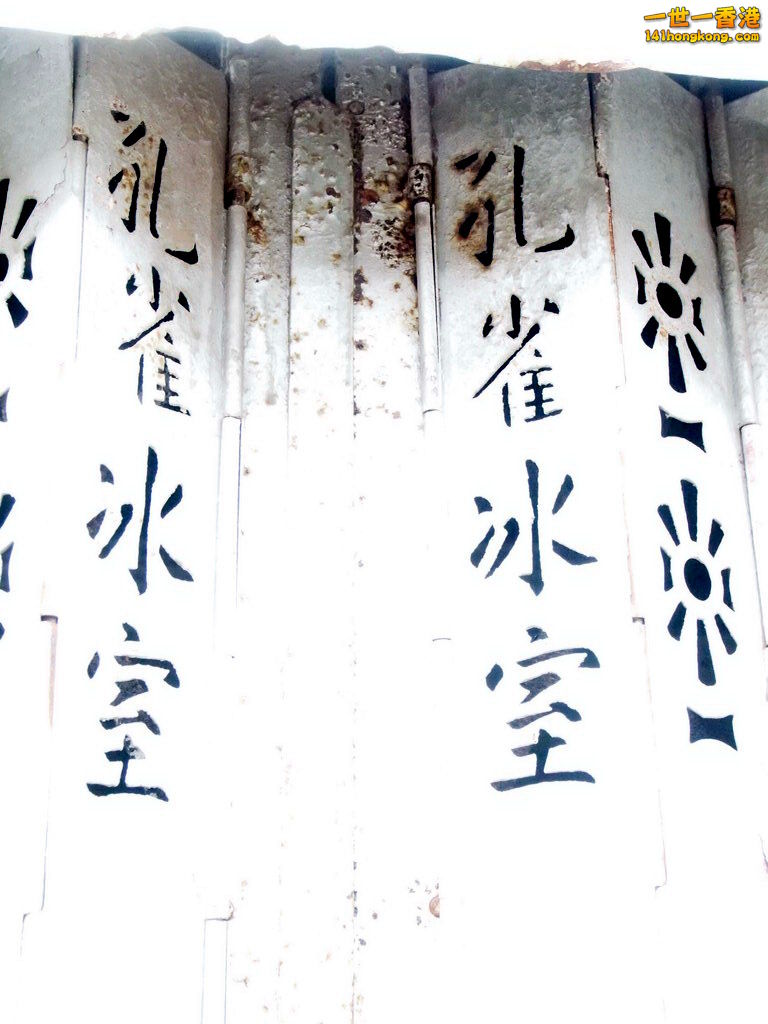 一世一香港
141hongkong.com
孔雀冰室
孔雀冰室